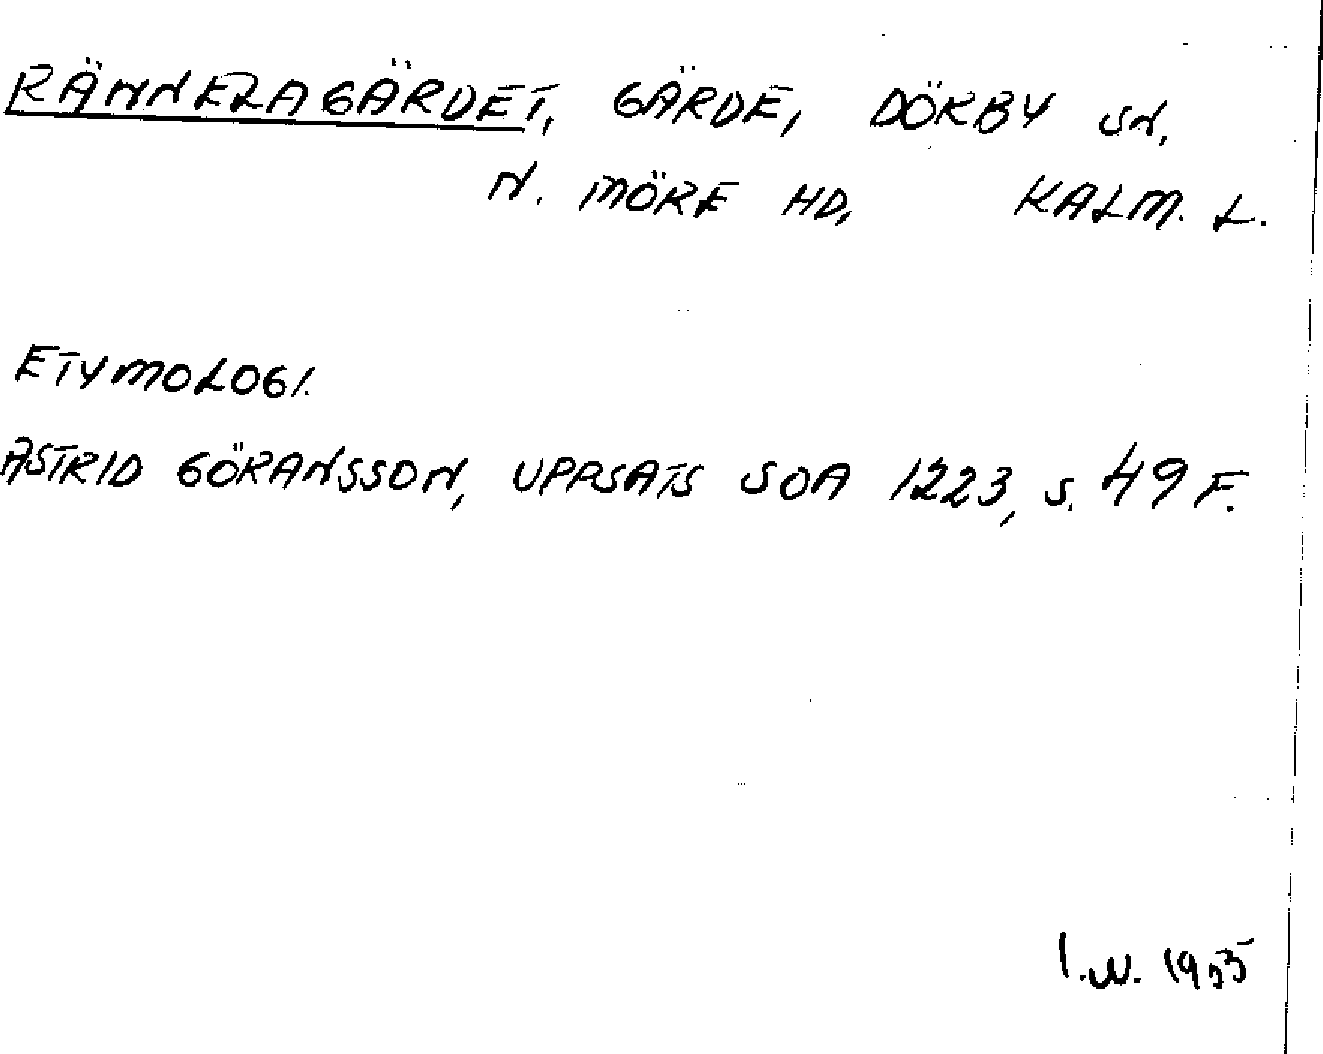 RÄNNERAGÄRDET, GÄRDE, DÖRBY SN,
N. MÖRE HD, KALM. L.
ETYMOLOGI.
ASTRID GÖRANSSON, UPPSATS SOA 1223, S. 49 F.
I.W. 1955